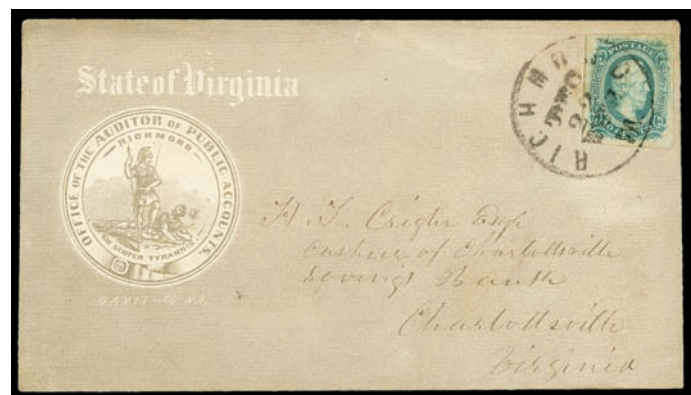 State of Virginia
OFFICE OF THE AUDITOR OF PUBLIC ACCOUNTS.
RICHMOND
SIC SEMPER TYRANNIS
RICHMOND
DEC
22
POSTAGE
Cashier of Charlottsville
Savings Bank
Charlottsville
Virginia